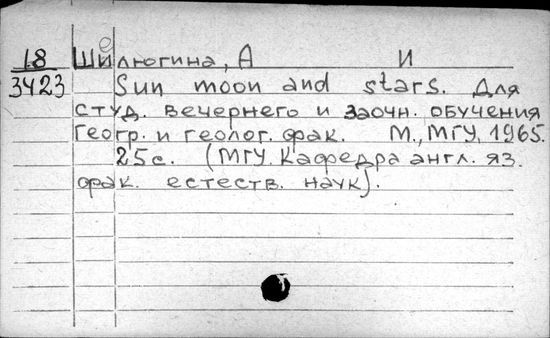 18 Шелюгина, А И
3423 Sun moon and stars. Для
студ. вечернего и заочн. обучения
геогр. и геолог. фак. М., МГУ, 1965.
25с. (МГУ. Кафедра англ. яз.
фак. естеств. наук).